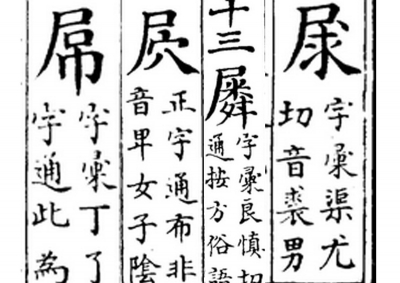 㞗
字彙渠尤
切音裘男
十三
𡳞
字彙良慎切
通按方俗語
屄
正字通布非
音卑女子陰
屌
字彙丁了
字通此為